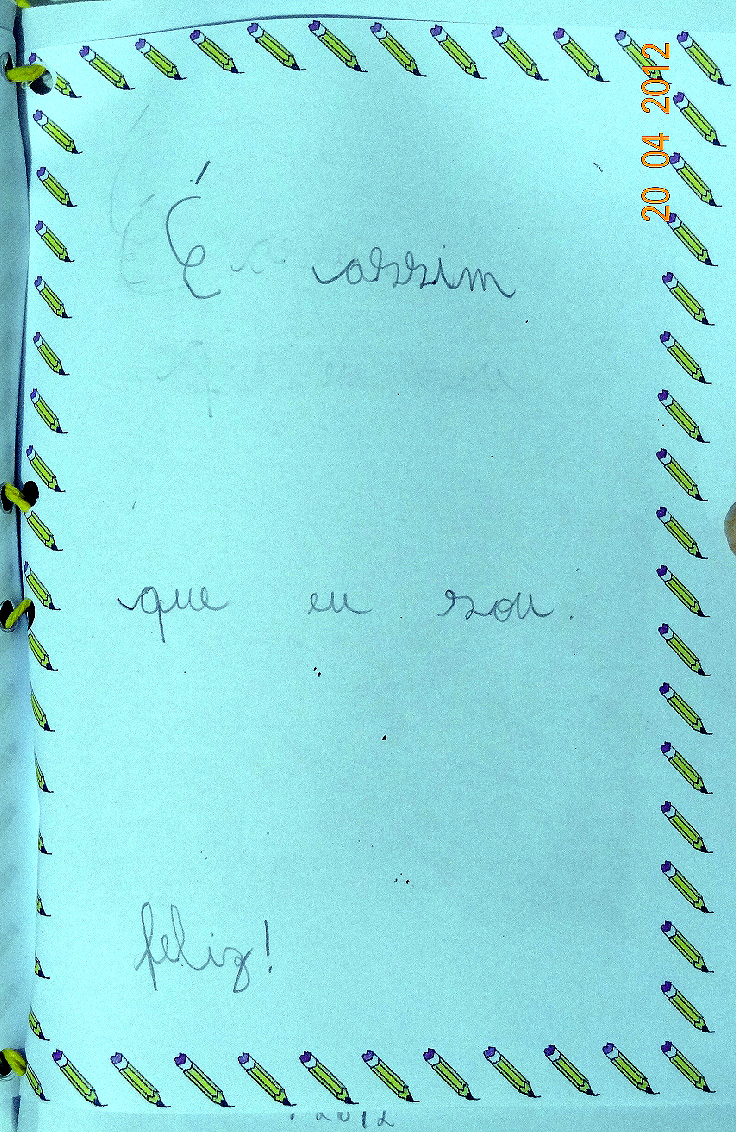 20 04 2012
É assim
que eu sou.
feliz!
2012